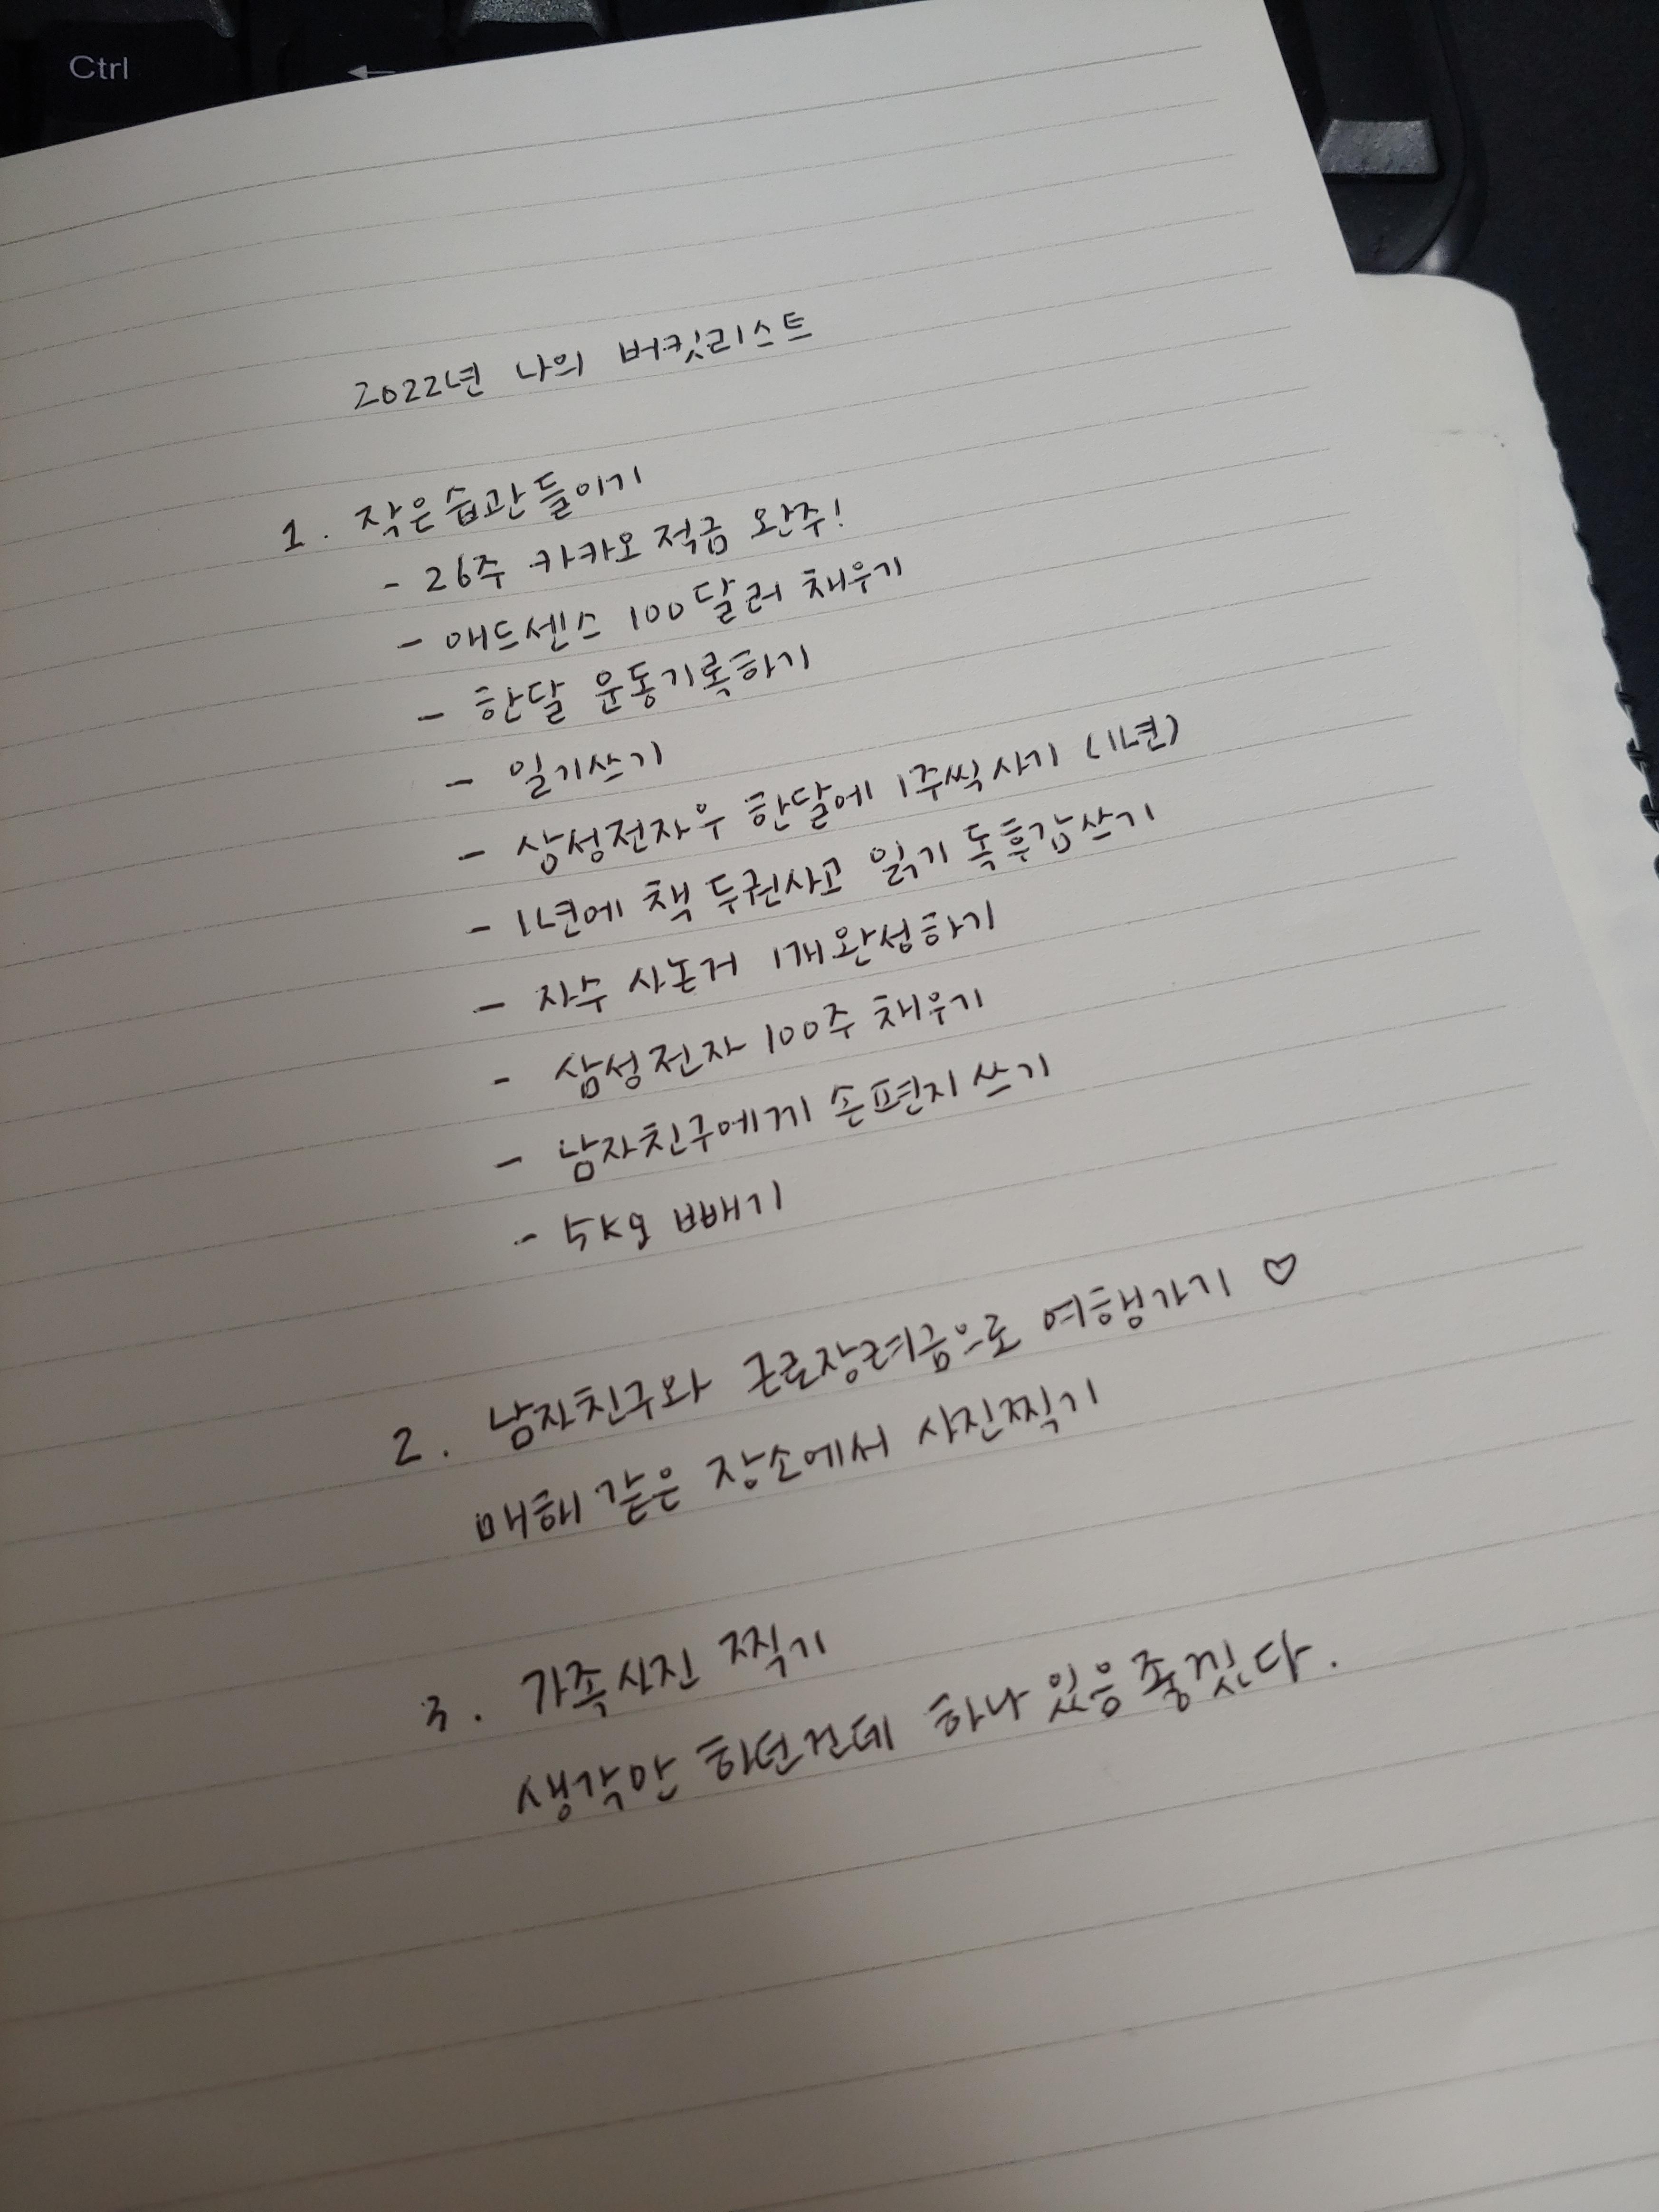 Ctrl
←
2022년 나의 버킷리스트
1. 작은습관들이기
- 26주 카카오 적금 완주!
- 애드센스 100달러 채우기
- 한달 운동기록하기
- 일기쓰기
- 삼성전자우 한달에 1주씩 사기 (1년)
- 1년에 책 두권사고 읽기 독후감쓰기
- 자수 사논거 1개완성하기
- 삼성전자 100주 채우기
- 남자친구에게 손편지 쓰기
- 5키로 빼기
2. 남자친구와 근로장려금으로 여행가기 ♡
매해 같은 장소에서 사진찍기
3. 가족사진 찍기
생각안 하던건데 하나 있음좋겠다.